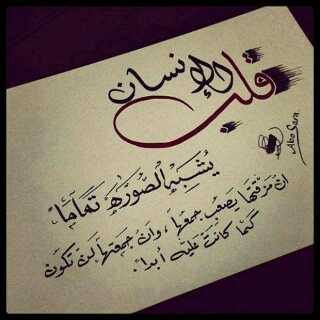 قلب الإنسان
يشبه الصورة تمامًا
ان مزقتها يصعب جمعها ، وان جمعتها لن تكون
كما كانت عليه أبدا"
Abo Sara